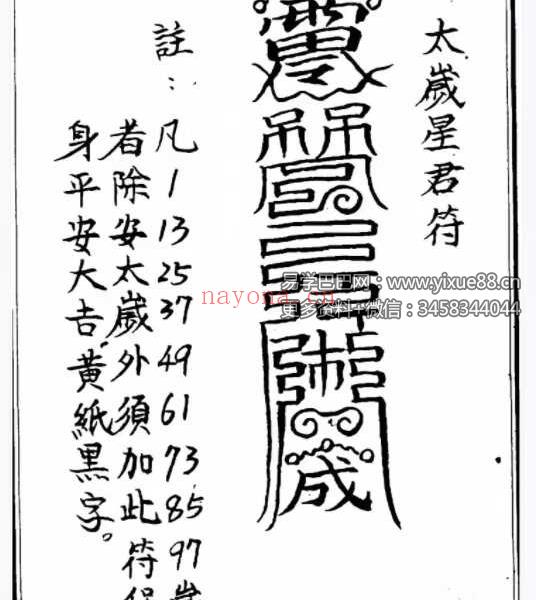 太歲星君符
註：凡1 13 25 37 49 61 73 85 97歲
者除安太歲外須加此符保
身平安大吉。黃紙黑字。
易学巴巴网：www.yixue88.cn
更多资料+微信：3458344044
nayona.cn